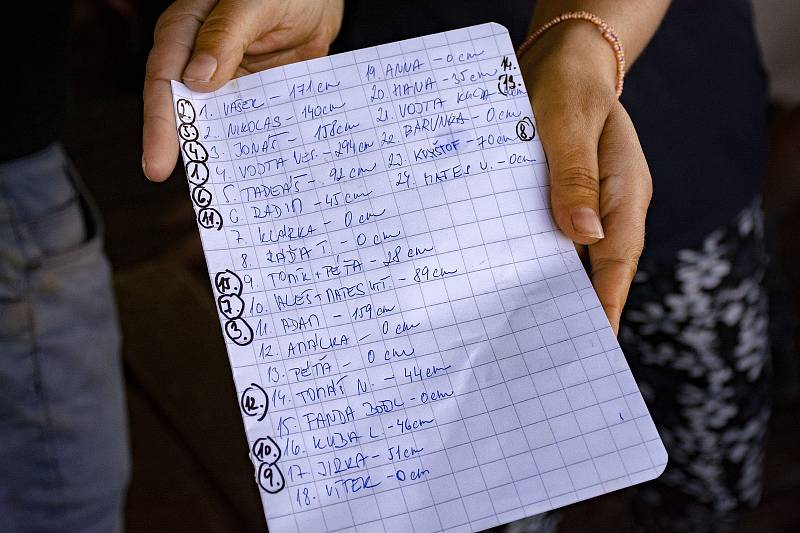 2. 1. VAŠEK - 171cm
3. 2. NIKOLAS - 140cm
4. 3. JONÁŠ - 138cm
1. 4. VOJTA VES. - 294cm
6. 5. TADEÁŠ - 92cm
11. 6. RADIM - 45cm
7. KLÁRKA - 0cm
8. T. - 0cm
9. TOMÍK + PÉŤA - 28cm
7. 10. ALEŠ + MATES - 89cm
3. 11. ADAM - 159cm
12. AMÁLKA - 0cm
13. PÉŤA - 0cm
12. 14. TOMÁŠ N. - 44cm
15. FANDA - 0cm
10. 16. KUBA L - 46cm
9. 17. JIRKA - 51cm
18. VÍTEK - 0cm
19. ANNA - 0cm
20. HANA - 35cm 14.
21. VOJTA
22. BARUNKA - 0cm
23. KRYŠTOF - 70cm 8.
24. MATES V. - 0cm